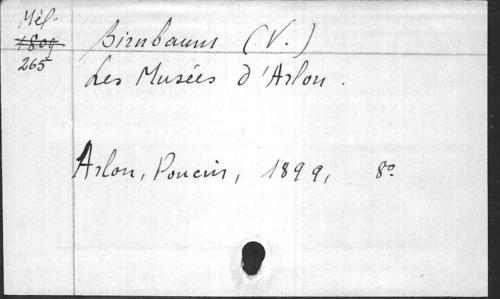 Mél.
1809
265
Birnbaum (V.)
Les Musées d'Arlon.
Arlon, Poncin, 1899, 8o